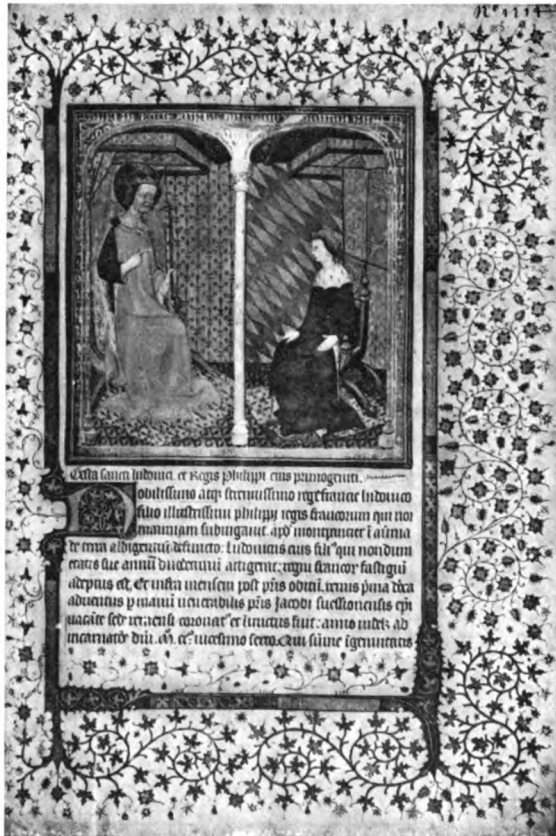 Nº 1114
Gesta sancti ludovici. et Regis Philippi eius primogeniti.
Nobilissimo atqȝ serenissimo rege francie ludovico
filio illustrissimi philippi regis francorum qui nor
manniam subiugavit. apď montpancier ī avnia
de terra albigensiū defuncto: ludovicus eius filiꝰ qui nondum
etatis sue annū duodecimū attigerat: regni francoꝝ fastigiū
adeptus est. Et infra mensem post pr̄is obitū. remis
adventus ꝑ manū venerabilis pr̄is Jacobi suessionensis ep̄i
vacāte sede remensi coronatꝰ et inūctus fuit: anno videlȝ ab
incarnatōe dn̄i. Mº. ccº. vicesimo sexto. Qui sūme īgenuitatis